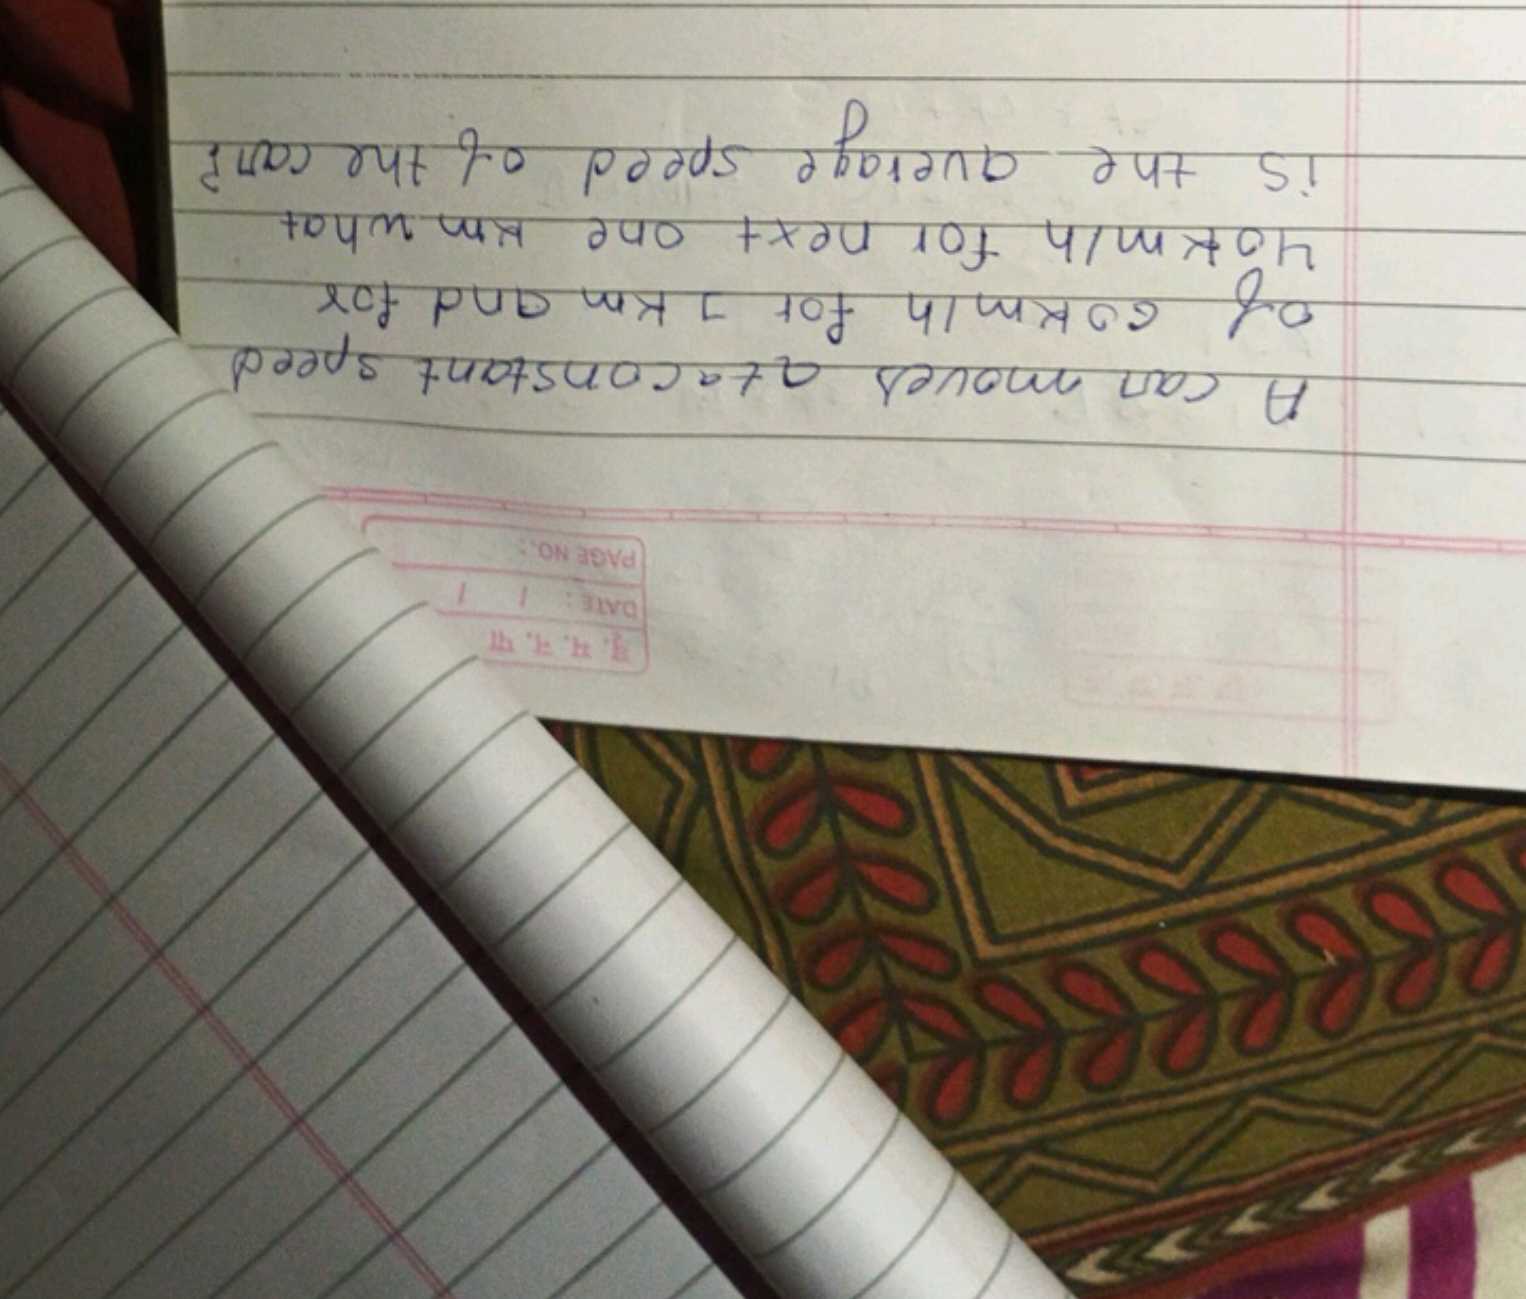 व. प. न. पा
DATE: / /
PAGE NO.:
A car moves at a constant speed
of 60km/h for 1 km and for
40km/h for next one km what
is the average speed of the car?